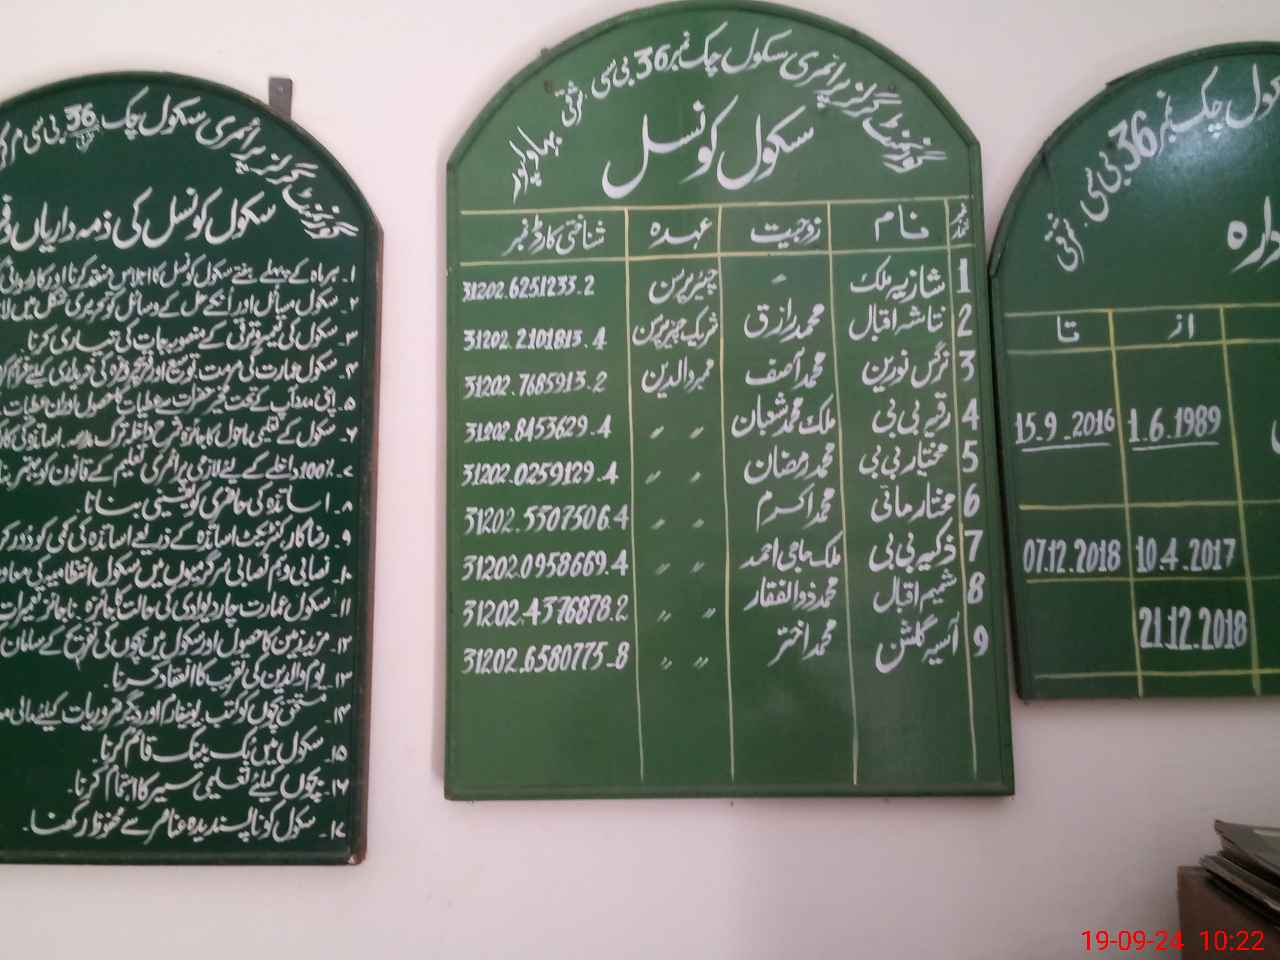 گورنمنٹ گرلز پرائمری سکول چک نمبر 36 بی سی شرقی بہاولپور
سکول کونسل
نمبر شمار نام زوجیت عہدہ شناختی کارڈ نمبر
1 شازیہ ملک 〃 چیئرپرسن 31202.6251233.2
2 نتاشہ اقبال محمد رازق شریک چیئرپرسن 31202.2101813.4
3 نرگس نورین محمد آصف ممبر والدین 31202.7685913.2
4 رقیہ بی بی ملک محمد شعبان 〃 〃 31202.8453629.4
5 مختیار بی بی محمد رمضان 〃 〃 31202.0259129.4
6 مختار مائی محمد اکرم 〃 〃 31202.5507506.4
7 ذکیہ بی بی ملک حاجی احمد 〃 〃 31202.0958669.4
8 شمیم اقبال محمد ذوالفقار 〃 〃 31202.4376878.2
9 آسیہ گلشن محمد اختر 〃 〃 31202.6580775-8
گورنمنٹ گرلز پرائمری سکول چک 36 بی سی
سکول کونسل کی ذمہ داریاں
۱۔ ہر ماہ کے پہلے ہفتے سکول کونسل کا اجلاس منعقد کرنا اور کاروائی
۲۔ سکول مسائل اور انکے حل کے وسائل کو تحریری شکل میں
۳۔ سکول کی تعمیر و ترقی کے منصوبہ جات کی تیاری کرنا
۴۔ سکول عمارت کی مرمت، توسیع اور فرنیچر وغیرہ کی خریداری کیلئے
۵۔ اپنی مدد آپ کے تحت مخیر حضرات سے عطیات کا حصول اور ان عطیات
۶۔ سکول کے تعلیمی ماحول کا جائزہ شرح داخلہ ترک مدرسہ، اساتذہ کی
۷۔ 100٪ داخلے کے لیئے لازمی پرائمری تعلیم کے قانون کو
۸۔ اساتذہ کی حاضری کو یقینی بنانا۔
۹۔ رضا کار کنٹریکٹ اساتذہ کے ذریعے اساتذہ کی کمی کو دور
۱۰۔ نصابی و ہم نصابی سرگرمیوں میں سکول انتظامیہ کی
۱۱۔ سکول عمارت چار دیواری کی حالت کا جائزہ۔ ناجائز
۱۲۔ مزید زمین کا حصول اور سکول میں بچوں کی تفریح کے سامان
۱۳۔ یوم والدین کی تقریب کا انعقاد کرنا۔
۱۴۔ مستحق بچوں کو کتب، یونیفارم اور دیگر ضروریات کیلئے مالی
۱۵۔ سکول میں بک بینک قائم کرنا۔
۱۶۔ بچوں کیلئے تعلیمی سیر کا اہتمام کرنا۔
۱۷۔ سکول کو ناپسندیدہ عناصر سے محفوظ رکھنا۔
چک نمبر 36 بی سی شرقی
از تا
1.6.1989 15.9.2016
10.4.2017 07.12.2018
21.12.2018
19-09-24 10:22